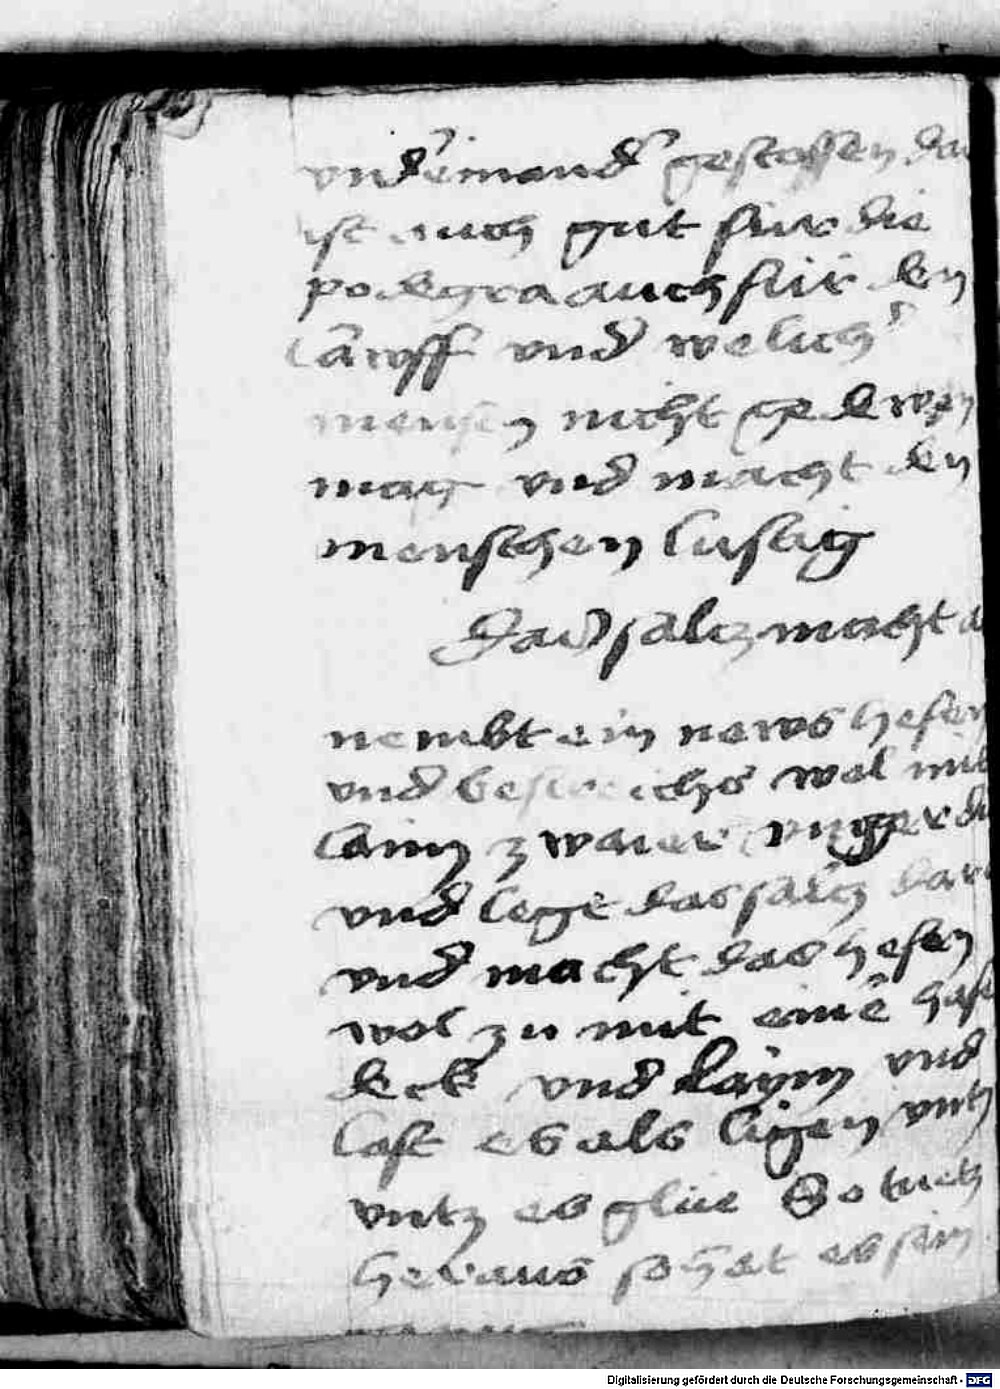 vnd' einand' gestossen das
ist auch gut für die
podegra auch für den
vnd welich'
menschen nicht gedewen
mag vnd macht den
menschen lustig
Das salcz macht
nembt ein news hefen
vnd bestreichs wol mit
laim zwaier vinger
vnd lege das salcz dar
vnd macht das hefen
wol zu mit eine haf
deck vnd laym vnd
last es als ligen vntz
vntz es glüe So tuetz
heraus so hat es sein